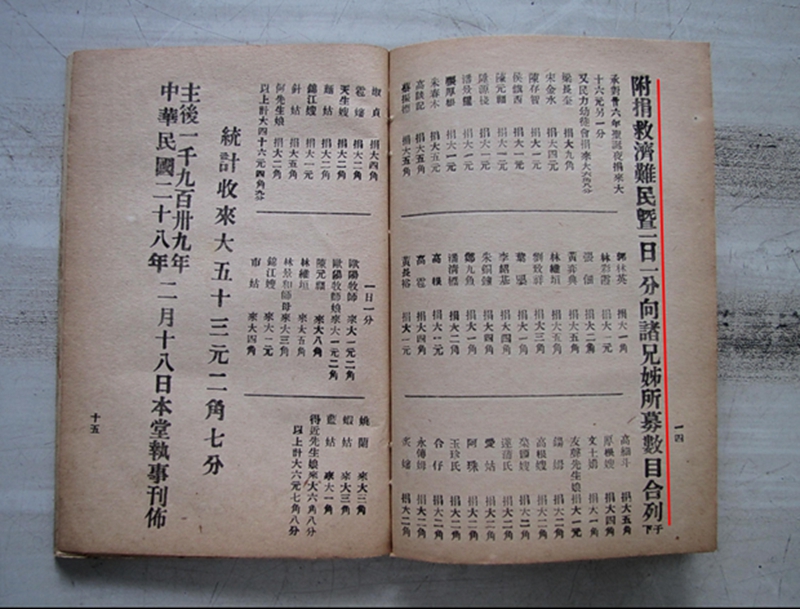 附捐救濟難民暨一日一分向諸兄姊所募數目合列于下
承對廿六年聖誕夜捐來大
十六元另一分
又民力幼稚會捐來大六角八分
梁長奎 捐大九角
宋金水 捐大四元
陳存智 捐大一元
侯慎酉 捐大一元
陳元 捐大一元
陸源棧 捐大一元
潘景 捐大一元
張厚 捐大一元
朱春木 捐大五元
高銕記 捐大五角
蔡振 捐大五角
郭林英 捐大一角
林對霞 捐大一元
張個 捐大二角
黃弈典 捐大五角
林維垣 捐大五角
劉致祥 捐大三角
葉 捐大一角
李紹基 捐大四角
朱 捐大一角
鄭九魚 捐大二角
潘清標 捐大一角
高 捐大一元
高 捐大四角
黃長裕 捐大一元
高 斗 捐大五角
厚 嫂 捐大四角
文士 捐大二角
友聲先生娘 捐大一元
錫 捐大二角
高 嫂 捐大二角
榮 嫂 捐大二角
蓮蒲氏 捐大二角
愛姑 捐大二角
阿珠 捐大二角
合仔 捐大二角
玉珍氏 捐大一角
永傳 捐大二角
捐大二角
一四
淑貞 捐大四角
捐大二角
天生嫂 捐大二角
姑 捐大二角
錦江嫂 捐大一元
針姑 捐大五角
何先生娘 捐大二角
以上計大四十六元四角九分
一日一分
歐陽牧師 來大一元二角
歐陽牧師娘 來大一元二角
陳元 來大八角
林維垣 來大五角
林景和師母 來大三角
錦江嫂 來大一元
市姑 來大四角
姚蘭 來大三角
蝦姑 來大三角
藍姑 來大一角
得近先生娘來大六角八分
以上計大六元七角八分
統計收來大五十三元二角七分
主後一千九百卅九年
中華民國二十八年 二月十八日本堂執事刊佈
十五